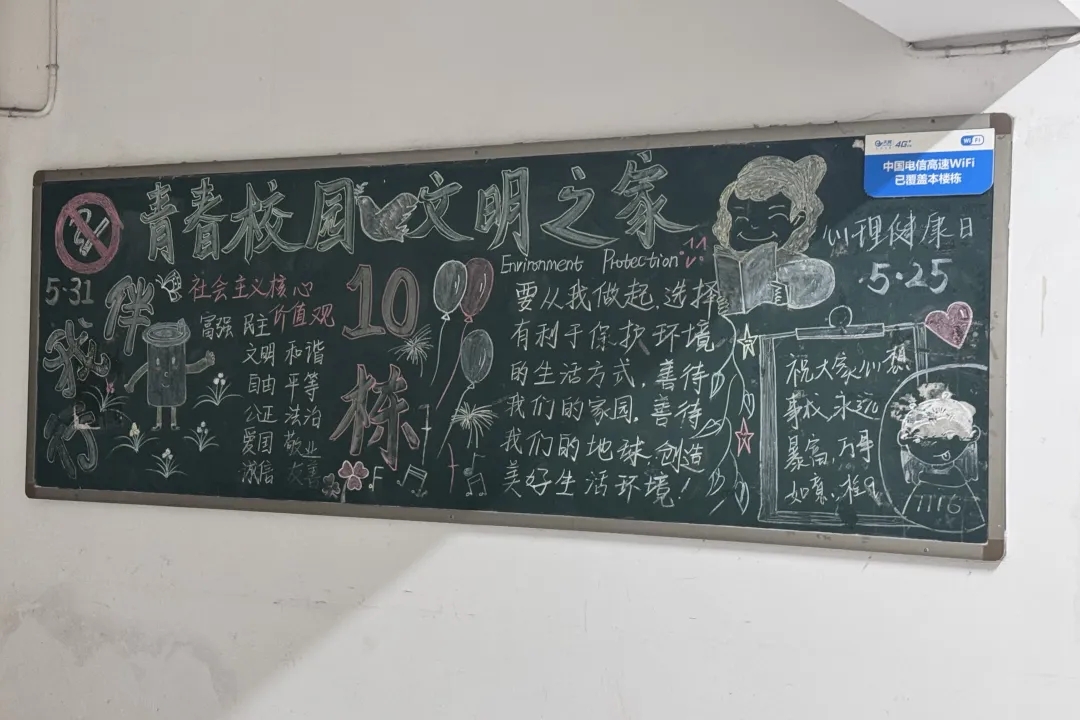 青春校园文明之家
5·31
伴
我
行
社会主义核心
价值观
富强 民主
文明 和谐
自由 平等
公正 法治
爱国 敬业
诚信 友善
10
栋
Environment Protection
要从我做起,选择
有利于保护环境
的生活方式,善待
我们的家园,善待
我们的地球,创造
美好生活环境!
中国电信高速WiFi
已覆盖本楼栋
4G
WiFi
心理健康日
5·25
祝大家心想
事成,永远
暴富,万事
如意
1116